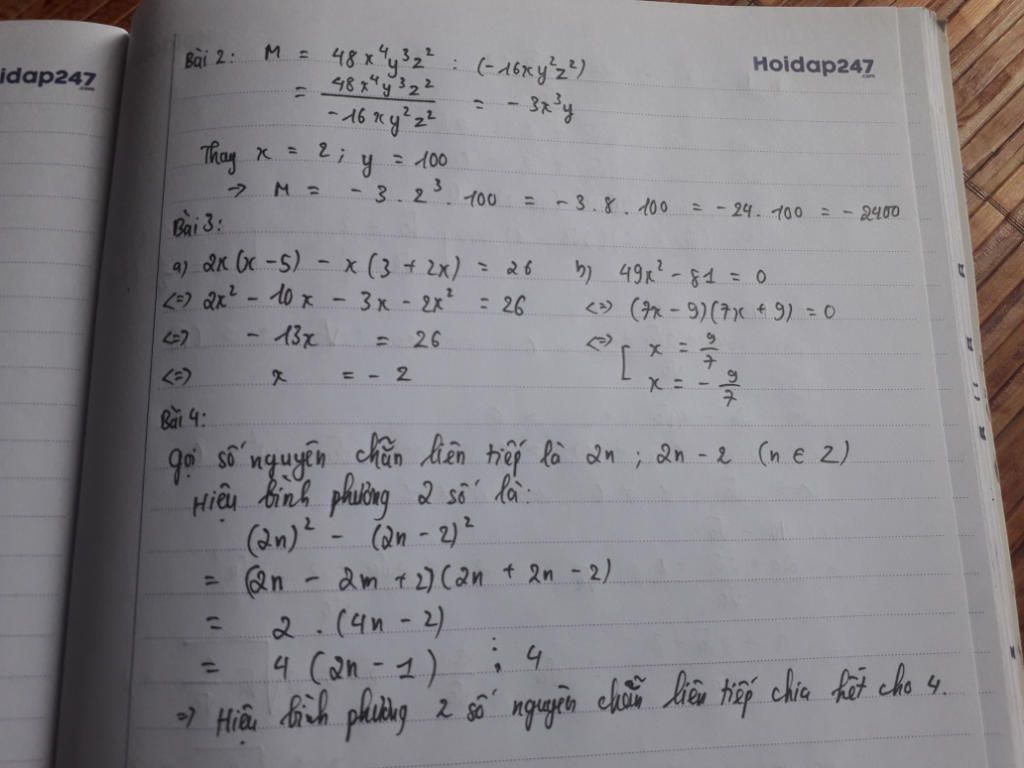 idap247
.com
Hoidap247
.com
Bài 2: M = 48x⁴y³z² : (-16xy²z²)
= 48x⁴y³z² / -16xy²z² = -3x³y
Thay x = 2; y = 100
→ M = -3.2³.100 = -3.8.100 = -24.100 = -2400
Bài 3:
a) 2x(x-5) - x(3+2x) = 26
<=> 2x² - 10x - 3x - 2x² = 26
<=> -13x = 26
<=> x = -2
b) 49x² - 81 = 0
<=> (7x-9)(7x+9) = 0
<=> [ x = 9/7
x = -9/7
Bài 4:
Gọi số nguyên chẵn liên tiếp là 2n; 2n-2 (n ∈ Z)
Hiệu bình phương 2 số là:
(2n)² - (2n-2)²
= (2n - 2m + 2)(2n + 2n - 2)
= 2.(4n-2)
= 4(2n-1) ⋮ 4
=> Hiệu bình phương 2 số nguyên chẵn liên tiếp chia hết cho 4.